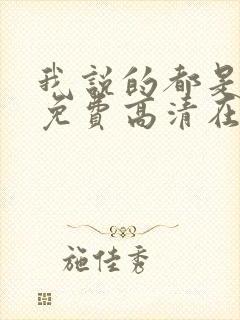 我说的都是
免费高清在
施佳秀